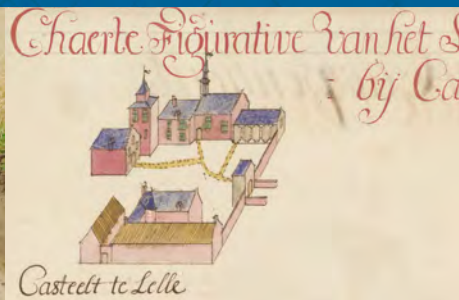 Chaerte Figurative Van het
bij Ca
Casteelt te Lelle